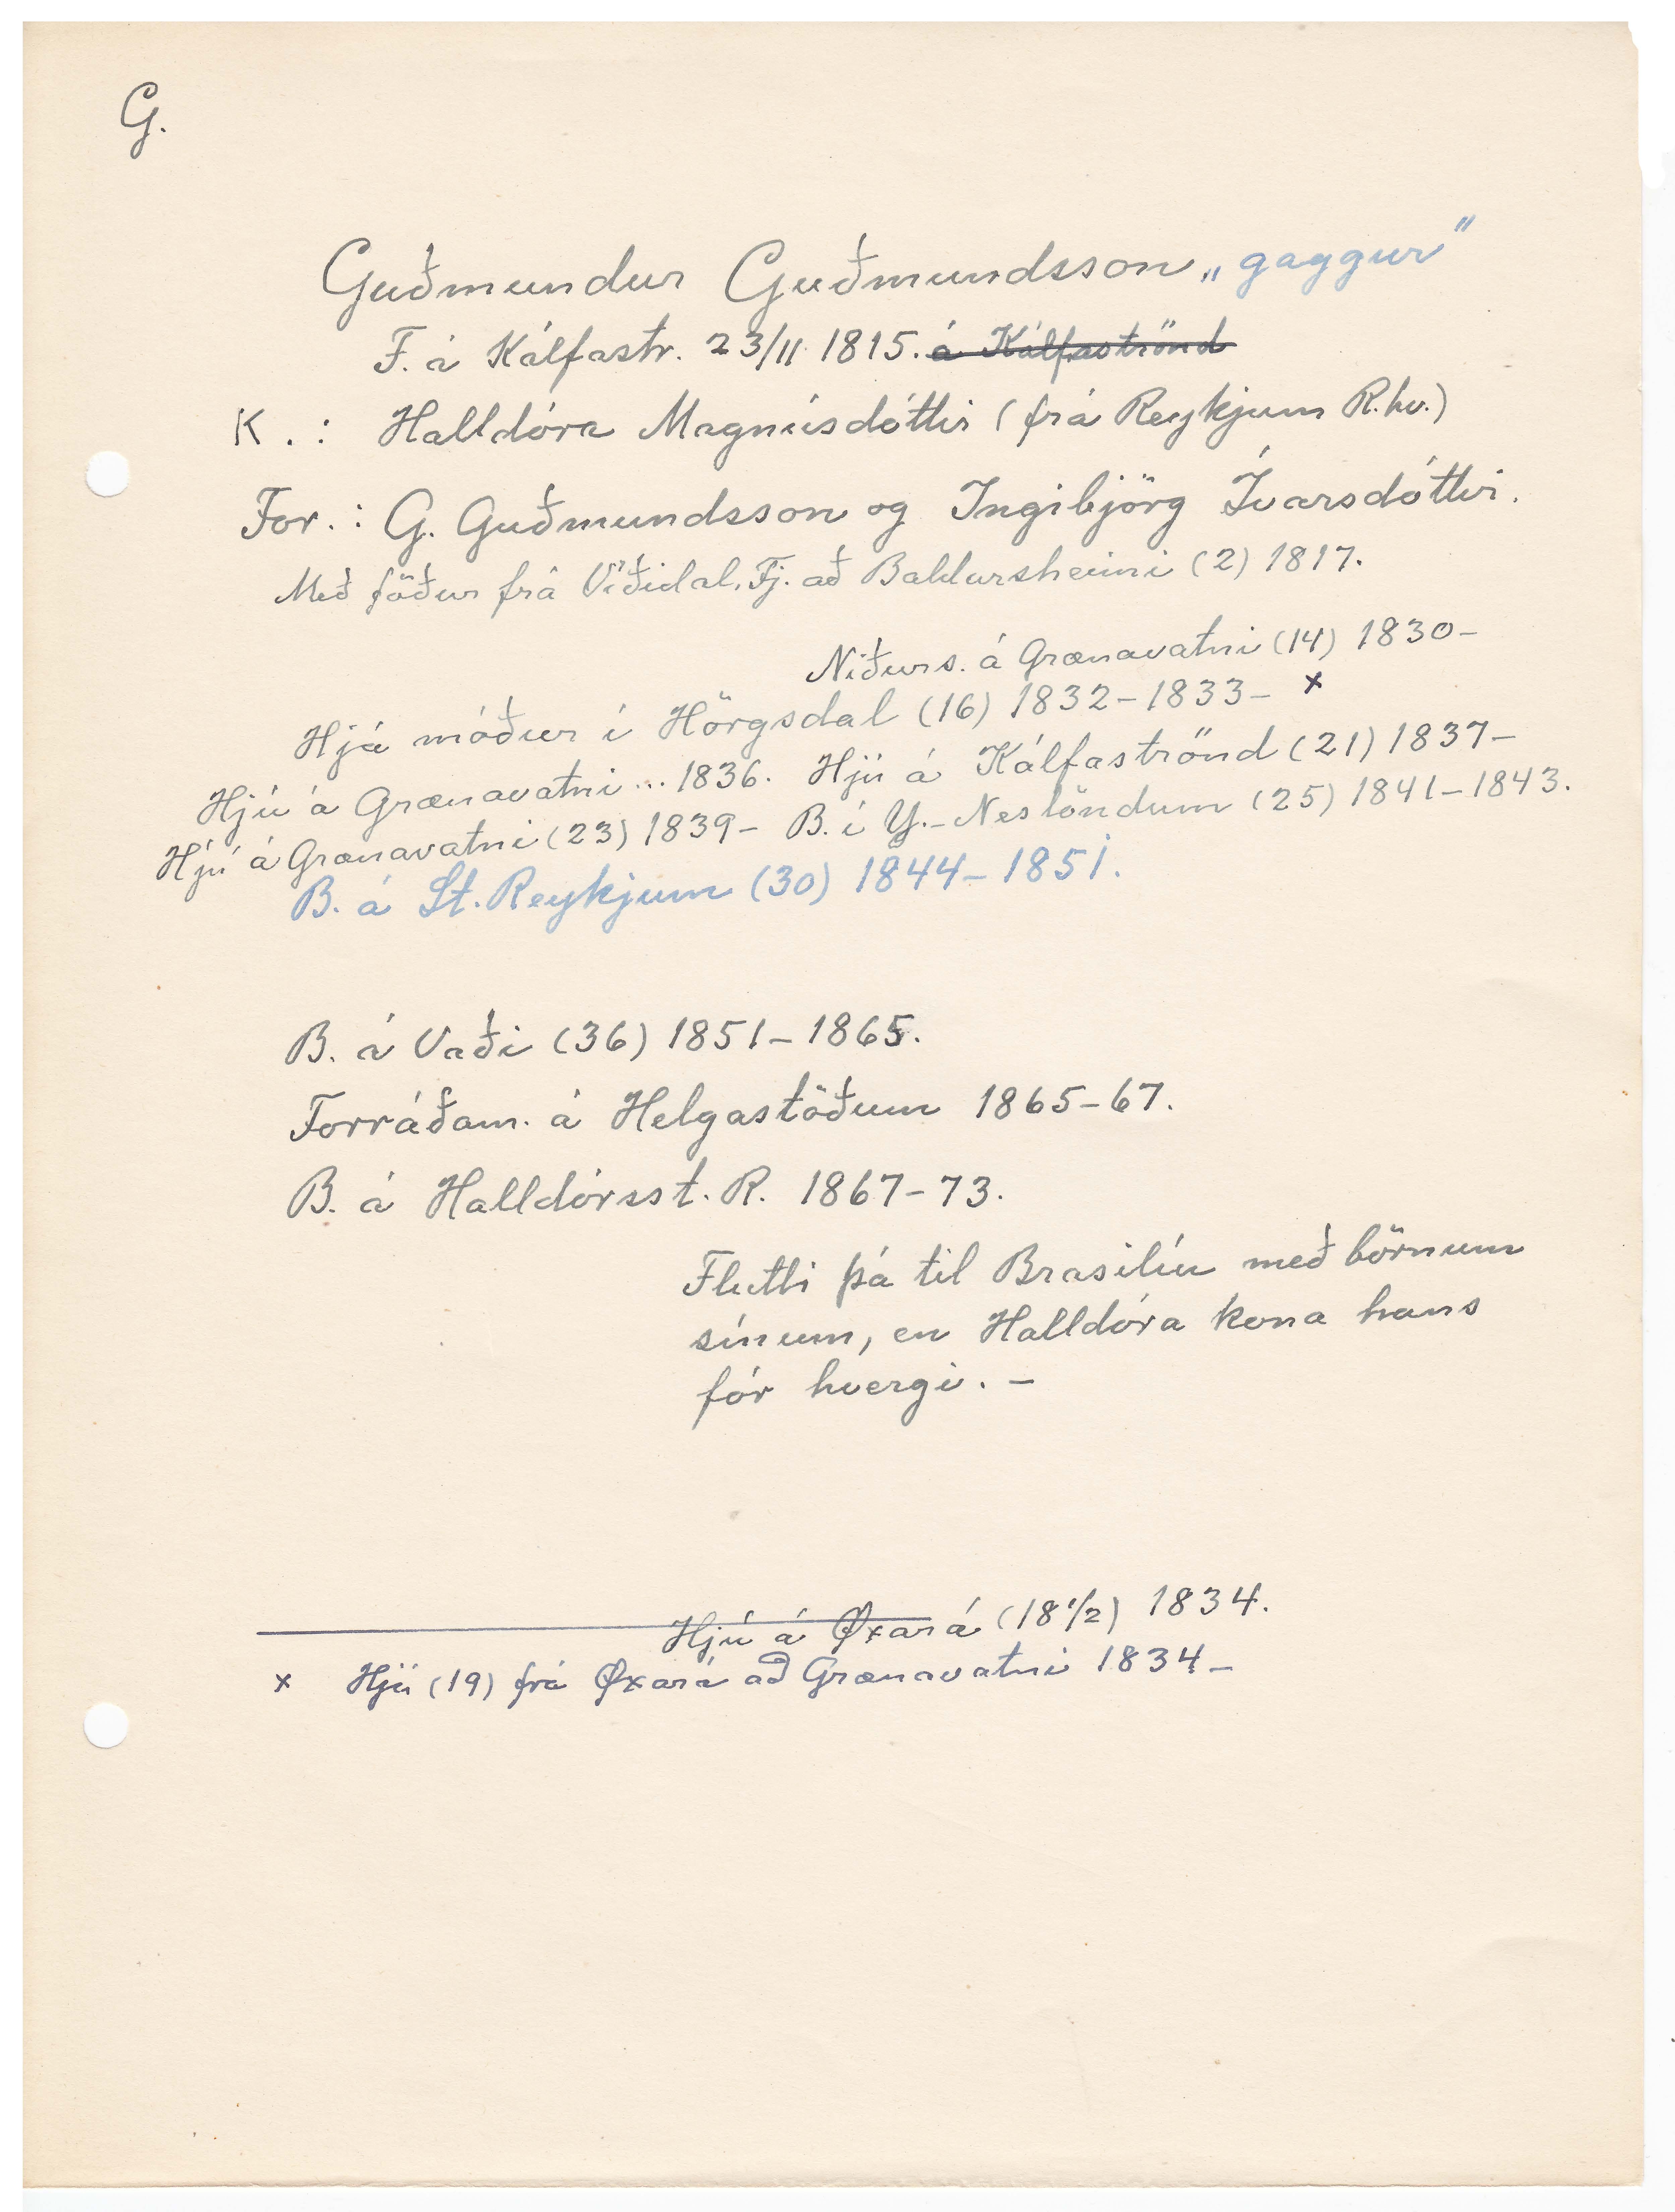 G.
Guðmundur Guðmundsson „gaggur"
F. á Kálfastr. 23/11 1815. á Kálfaströnd
K.: Halldóra Magnúsdóttir (frá Reykjum R.hv.)
For.: G. Guðmundsson og Ingibjörg Ívarsdóttir.
Með föður frá Víðidal, Fj. að Baldursheimi (2) 1817.
Niðurs. á Grænavatni (14) 1830-
Hjá móður í Hörgsdal (16) 1832-1833- x
Hjú á Grænavatni ... 1836. Hjú á Kálfaströnd (21) 1837-
Hjú á Grænavatni (23) 1839- B. í Y.-Neslöndum (25) 1841-1843.
B. á St. Reykjum (30) 1844-1851.
B. á Vaði (36) 1851-1865.
Forráðam. á Helgastöðum 1865-67.
B. á Halldórsst. R. 1867-73.
Flutti þá til Brasilíu með börnum
sínum, en Halldóra kona hans
fór hvergi. -
Hjú á Øxará (18 1/2) 1834.
x Hjú (19) frá Øxará að Grænavatni 1834-